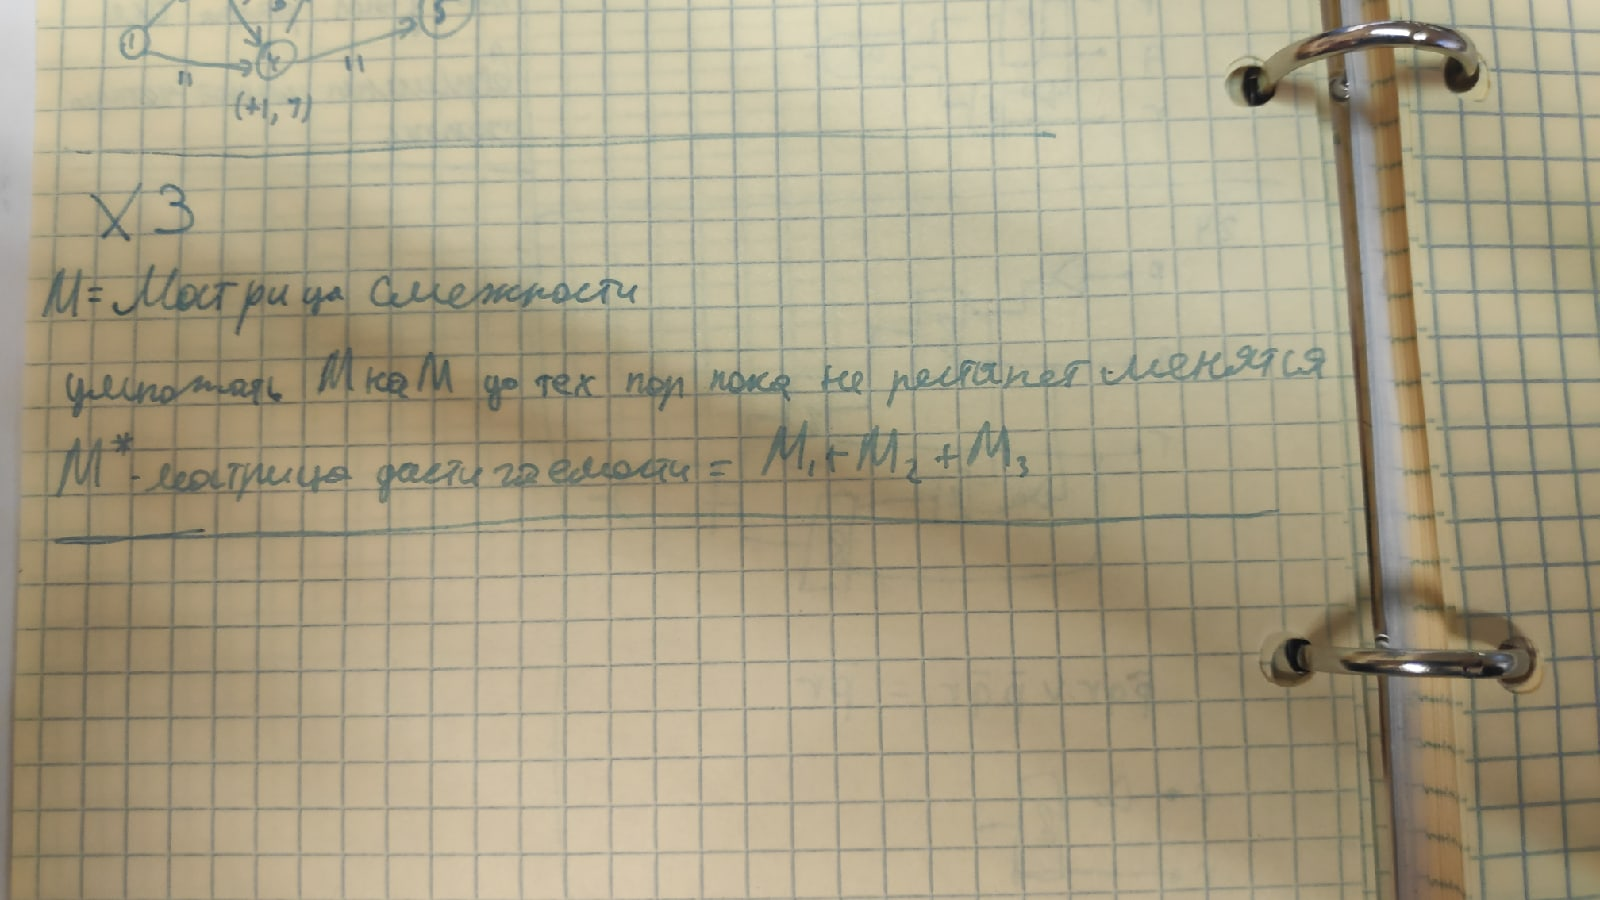 1
4
5
11
11
(+1, 7)
X 3
M = Матрица смежности
умножать M на M до тех пор пока не рестанет менятся
M* - матрица достигаемости = M₁ + M₂ + M₃